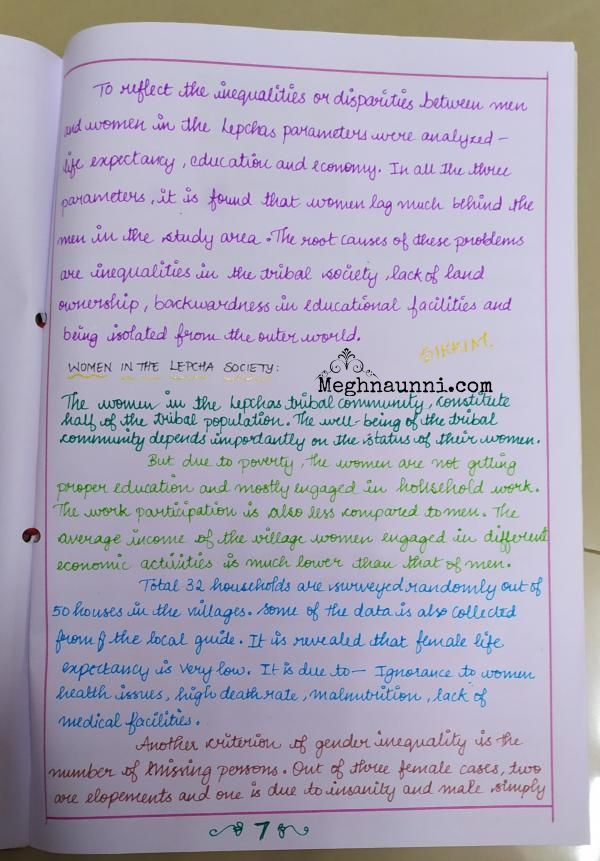 To reflect the inequalities or disparities between men
and women in the Lepchas parameters were analyzed -
life expectancy, education and economy. In all the three
parameters, it is found that women lag much behind the
men in the study area. The root causes of these problems
are inequalities in the tribal society, lack of land
ownership, backwardness in educational facilities and
being isolated from the outer world.
SIKKIM.
WOMEN IN THE LEPCHA SOCIETY:
Meghnaunni.com
The women in the Lepchas tribal community, constitute
half of the tribal population. The well-being of the tribal
community depends importantly on the status of their women.
But due to poverty, the women are not getting
proper education and mostly engaged in household work.
The work participation is also less compared to men. The
average income of the village women engaged in different
economic activities is much lower than that of men.
Total 32 households are surveyed randomly out of
50 houses in the villages. Some of the data is also collected
from the local guide. It is revealed that female life
expectancy is very low. It is due to - Ignorance to women
health issues, high death rate, malnutrition, lack of
medical facilities.
Another criterion of gender inequality is the
number of missing persons. Out of three female cases, two
are elopements and one is due to insanity and male simply
7